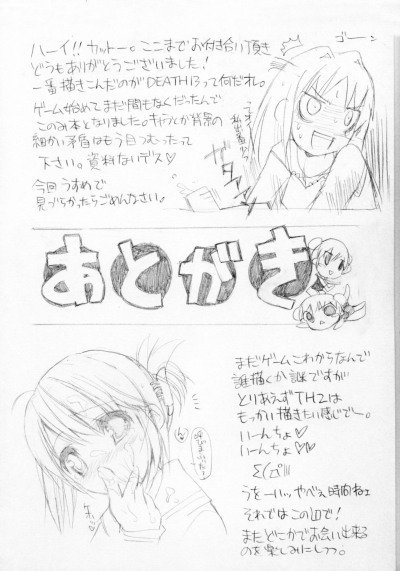 ハーイ!!カットー。ここまでお付き合い頂き
どうもありがとうございました!
一番描きこんだのがDEATH13って何だれ。
ゲーム始めてまだ間もなくだったんで
このみ本となりました。キャラとか背景の
細かい矛盾はもう目つむったって
下さい。資料ないデス♡
今回うすめで
見づらかったらごめんなさい。
ゴーン
あとがき
まだゲームこわからなんで
誰描くか謎ですが
とりあえずTH2は
もっかい描きたい感じでー。
いーんちょ♡
いーんちょ♡♡
うをーいッやべぇ時間ねェ
それではこの辺で!
またどこかでお会い出来る
のを楽しみにしつつ。